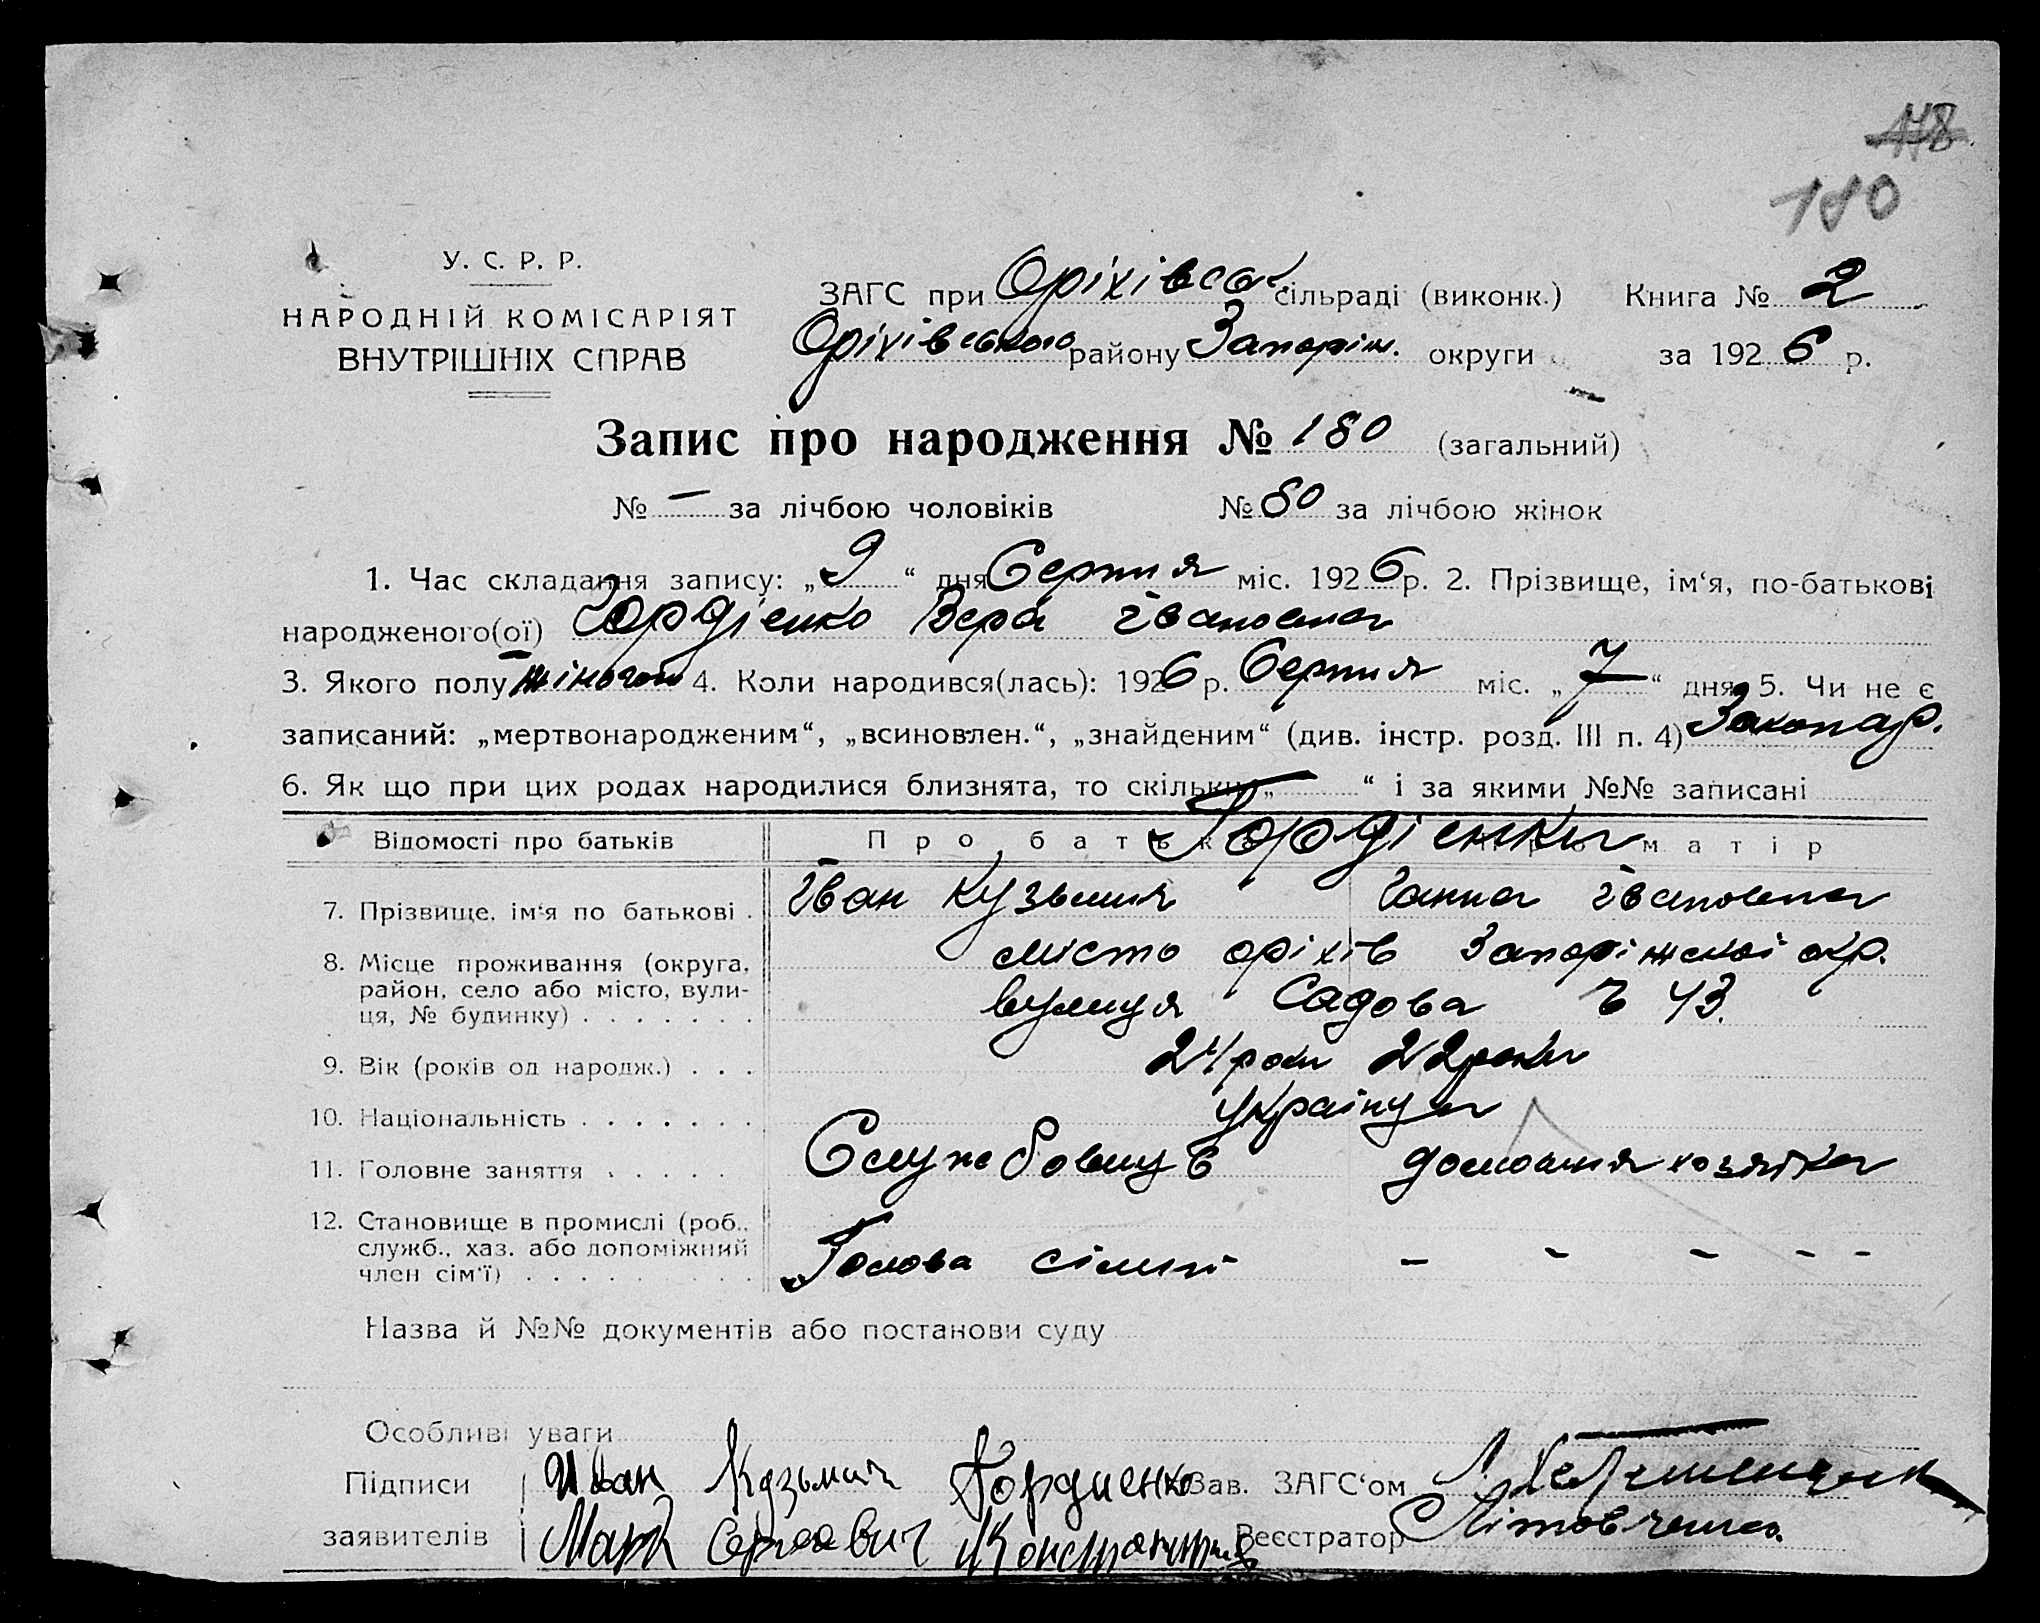 118
180
У. С. Р. Р.
НАРОДНІЙ КОМІСАРІЯТ
ВНУТРІШНІХ СПРАВ
ЗАГС при Оріхівськ. сільраді (виконк.) Книга № 2
Оріхівського району Запоріж. округи за 1926 р.
Запис про народження № 180 (загальний)
№ — за лічбою чоловіків № 80 за лічбою жінок
1. Час складання запису: „9“ дня Серпня міс. 1926 р. 2. Прізвище, ім‘я, по-батькові
народженого(ої) Гордієнко Вера Івановна
3. Якого полу жіночого 4. Коли народився(лась): 1926 р. Серпня міс. „7“ дня 5. Чи не є
записаний: „мертвонародженим“, „всиновлен.“, „знайденим“ (див. інстр. розд. III п. 4)
6. Як що при цих родах народилися близнята, то скільки „—“ і за якими №№ записані
Відомості про батьків Про батька Про матір
Гордієнки
7. Прізвище, ім‘я по батькові . Іван Кузьмич Ганна Івановна
8. Місце проживання (округа, місто Оріхів Запоріжскоі окр.
район, село або місто, вули-
ця, № будинку) . . . . . . . вулиця Садова ч 43.
9. Вік (років од народж.) . . . 24 роки 22 роки
10. Національність . . . . . . . Українці
11. Головне заняття . . . . . Службовець домашня хозяйка
12. Становище в промислі (роб.,
служб., хаз. або допоміжний Голова — — — — —
член сім‘ї) . . . . . . . . .
Назва й №№ документів або постанови суду
Особливі уваги
Підписи Иван Кузьмич Гордиенко Зав. ЗАГС‘ом
заявителів Марк Сергеевич Реєстратор Літовченко